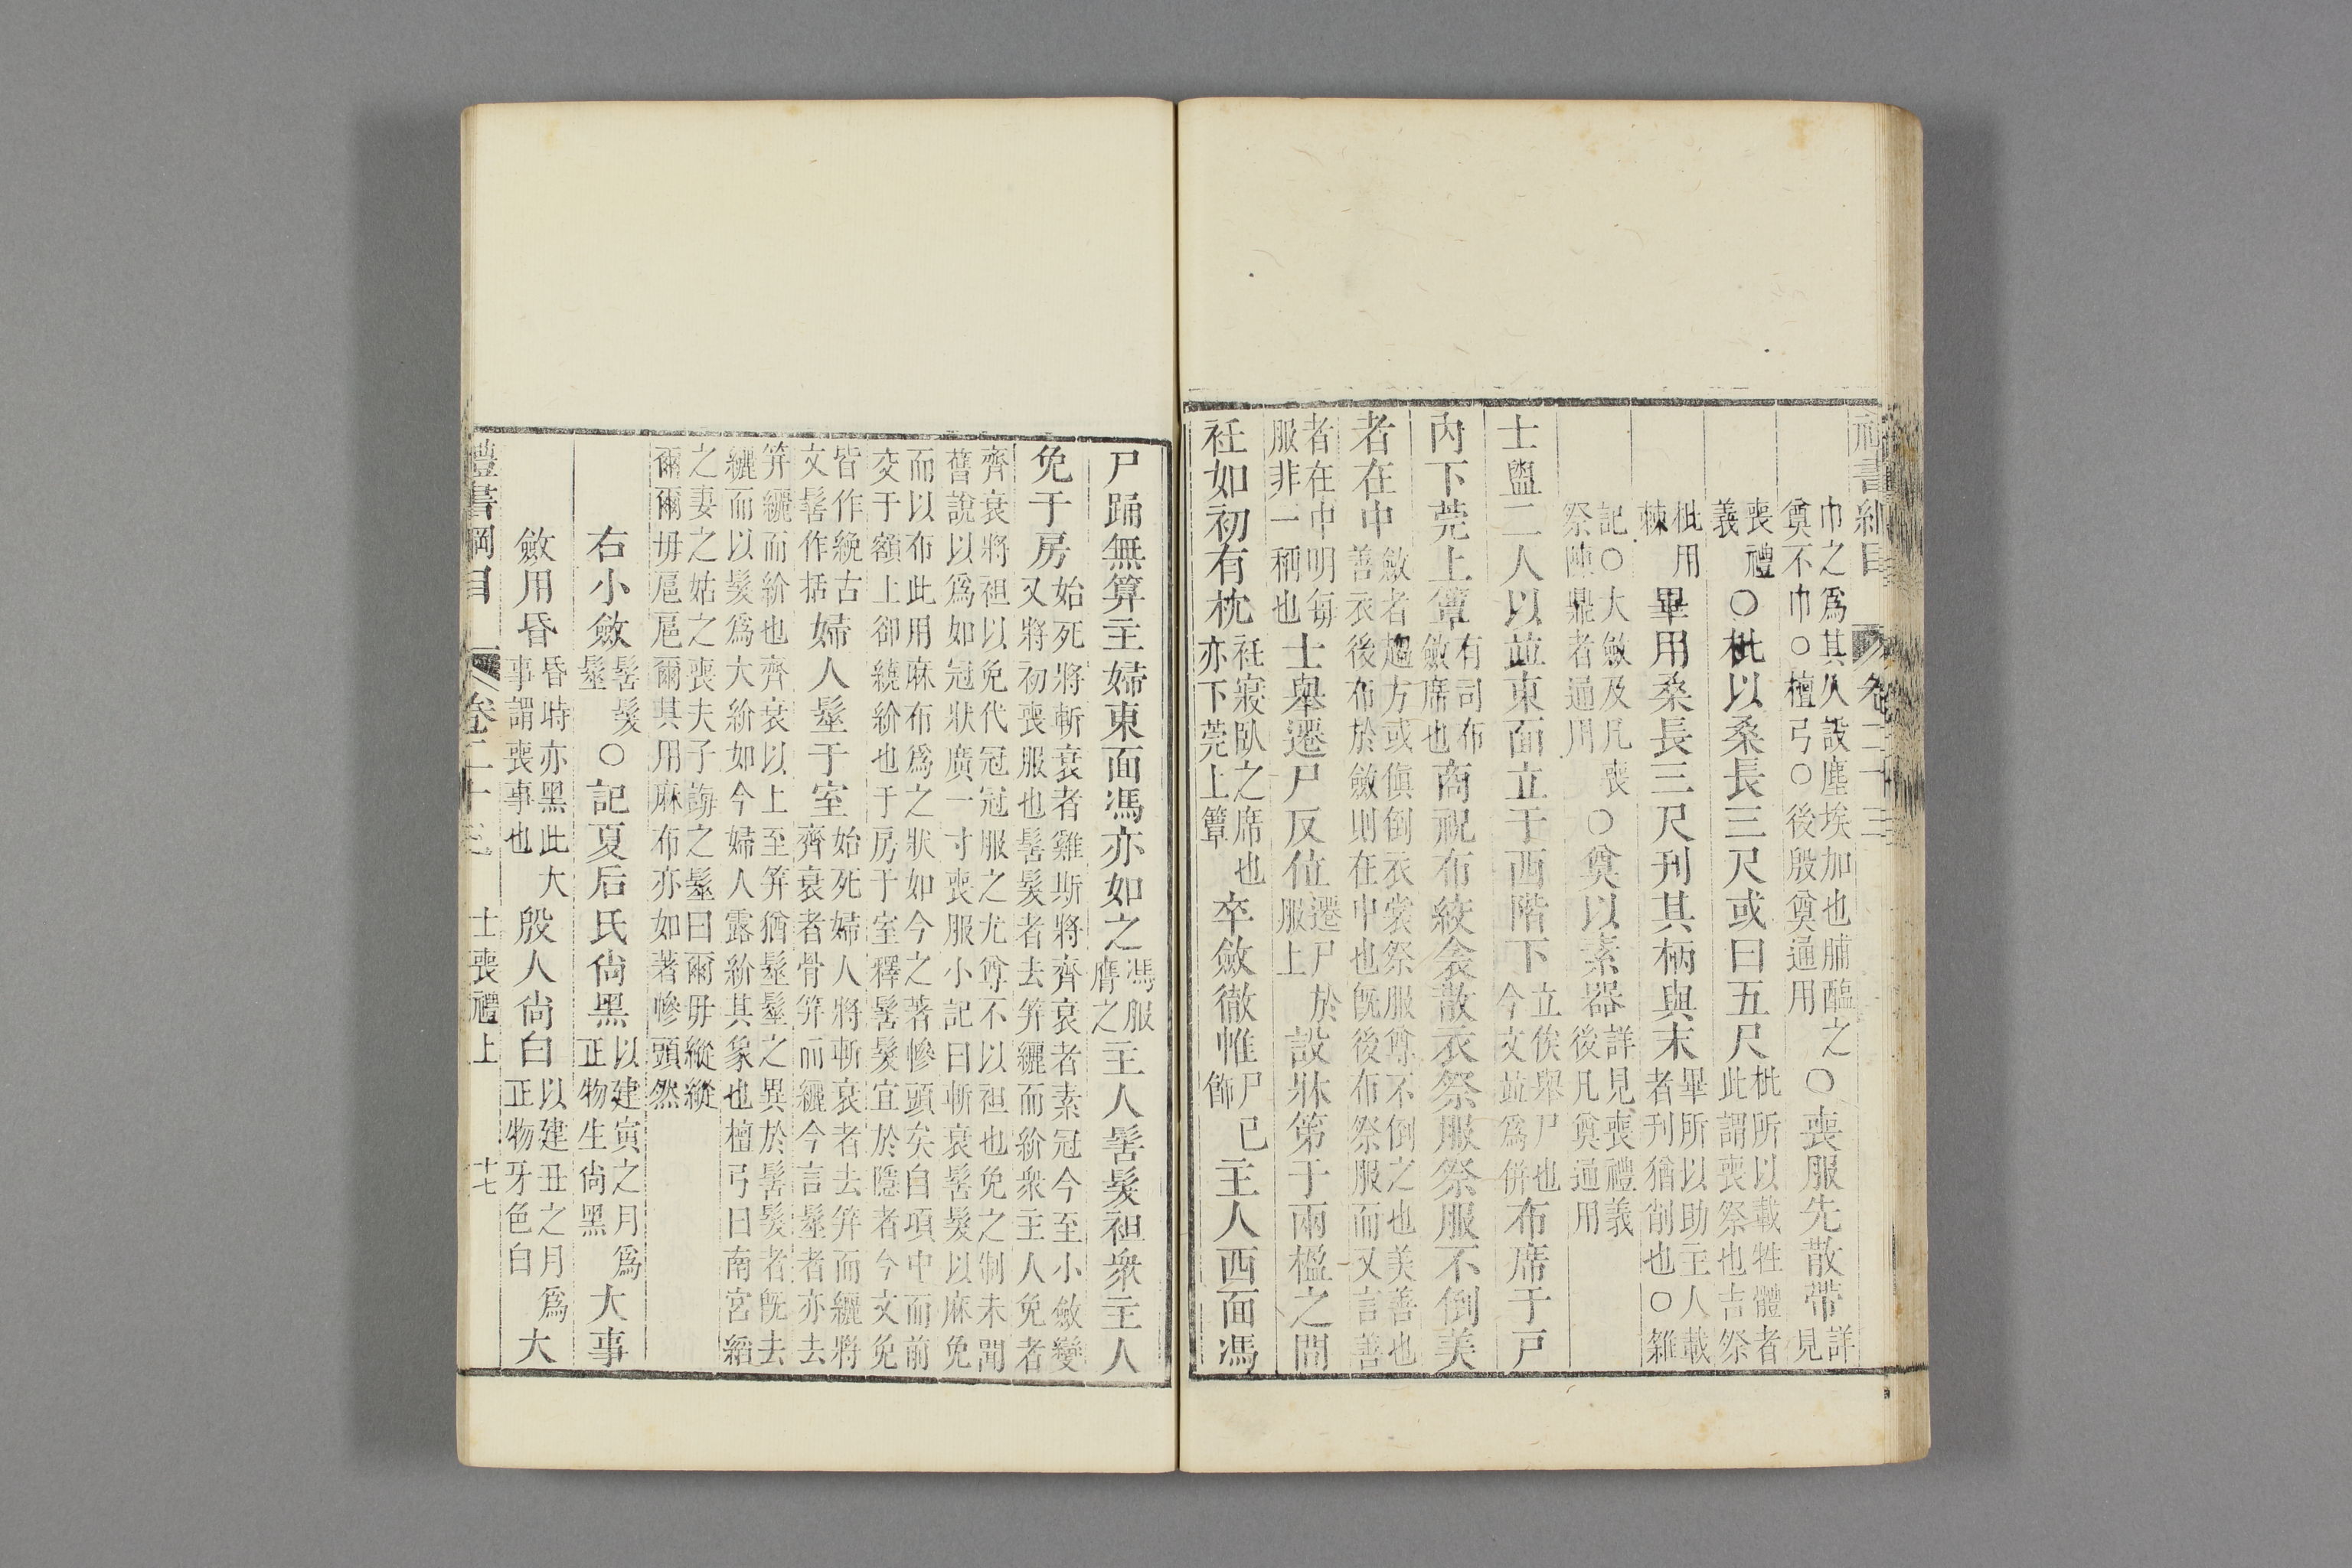 禮書綱目 卷二十三
巾之爲其久設塵埃加也脯醢之奠不巾○檀弓○後殷奠通用○喪服先散帶詳見
喪禮義○枇以桑長三尺或曰五尺枇所以載牲體者此謂喪祭也吉祭
枇用棘畢用桑長三尺刊其柄與末畢所以助主人載者刊猶削也○雜
記○大斂及凡喪祭陳鼎者通用○奠以素器詳見喪禮義後凡奠通用
士盥二人以竝東面立于西階下立俟舉尸也今文竝爲併布席于戸
內下莞上簟有司布斂席也商祝布絞衾散衣祭服祭服不倒美
者在中斂者趨方或傎倒衣裳祭服尊不倒之也美善也善衣後布於斂則在中也旣後布祭服而又言善
者在中明每服非一稱也士舉遷尸反位遷尸於服上設牀第于兩楹之間
衽如初有枕衽寢臥之席也亦下莞上簟卒斂徹帷尸已飾主人西面馮
尸踊無算主婦東面馮亦如之馮服膺之主人髻髮袒衆主人
免于房始死將斬衰者雞斯將齊衰者素冠今至小斂變又將初喪服也髻髮者去笄纚而紒衆主人免者
齊衰將袒以免代冠冠服之尤尊不以袒也免之制未聞舊說以爲如冠狀廣一寸喪服小記曰斬衰髻髮以麻免
而以布此用麻布爲之狀如今之著幓頭矣自項中而前交于額上卻繞紒也于房于室釋髻髮宜於隱者今文免
皆作絻古文髻作括婦人髽于室始死婦人將斬衰者去笄而纚將齊衰者骨笄而纚今言髽者亦去
笄纚而紒也齊衰以上至笄猶髽髽之異於髻髮者旣去纚而以髮爲大紒如今婦人露紒其象也檀弓曰南宮縚
之妻之姑之喪夫子誨之髽曰爾毋縱縱爾爾毋扈扈爾其用麻布亦如著幓頭然
右小斂髻髮髽○記夏后氏尙黑以建寅之月爲正物生尙黑大事
斂用昏昏時亦黑此大事謂喪事也殷人尙白以建丑之月爲正物牙色白大
禮書綱目 卷二十三 士喪禮上 十七